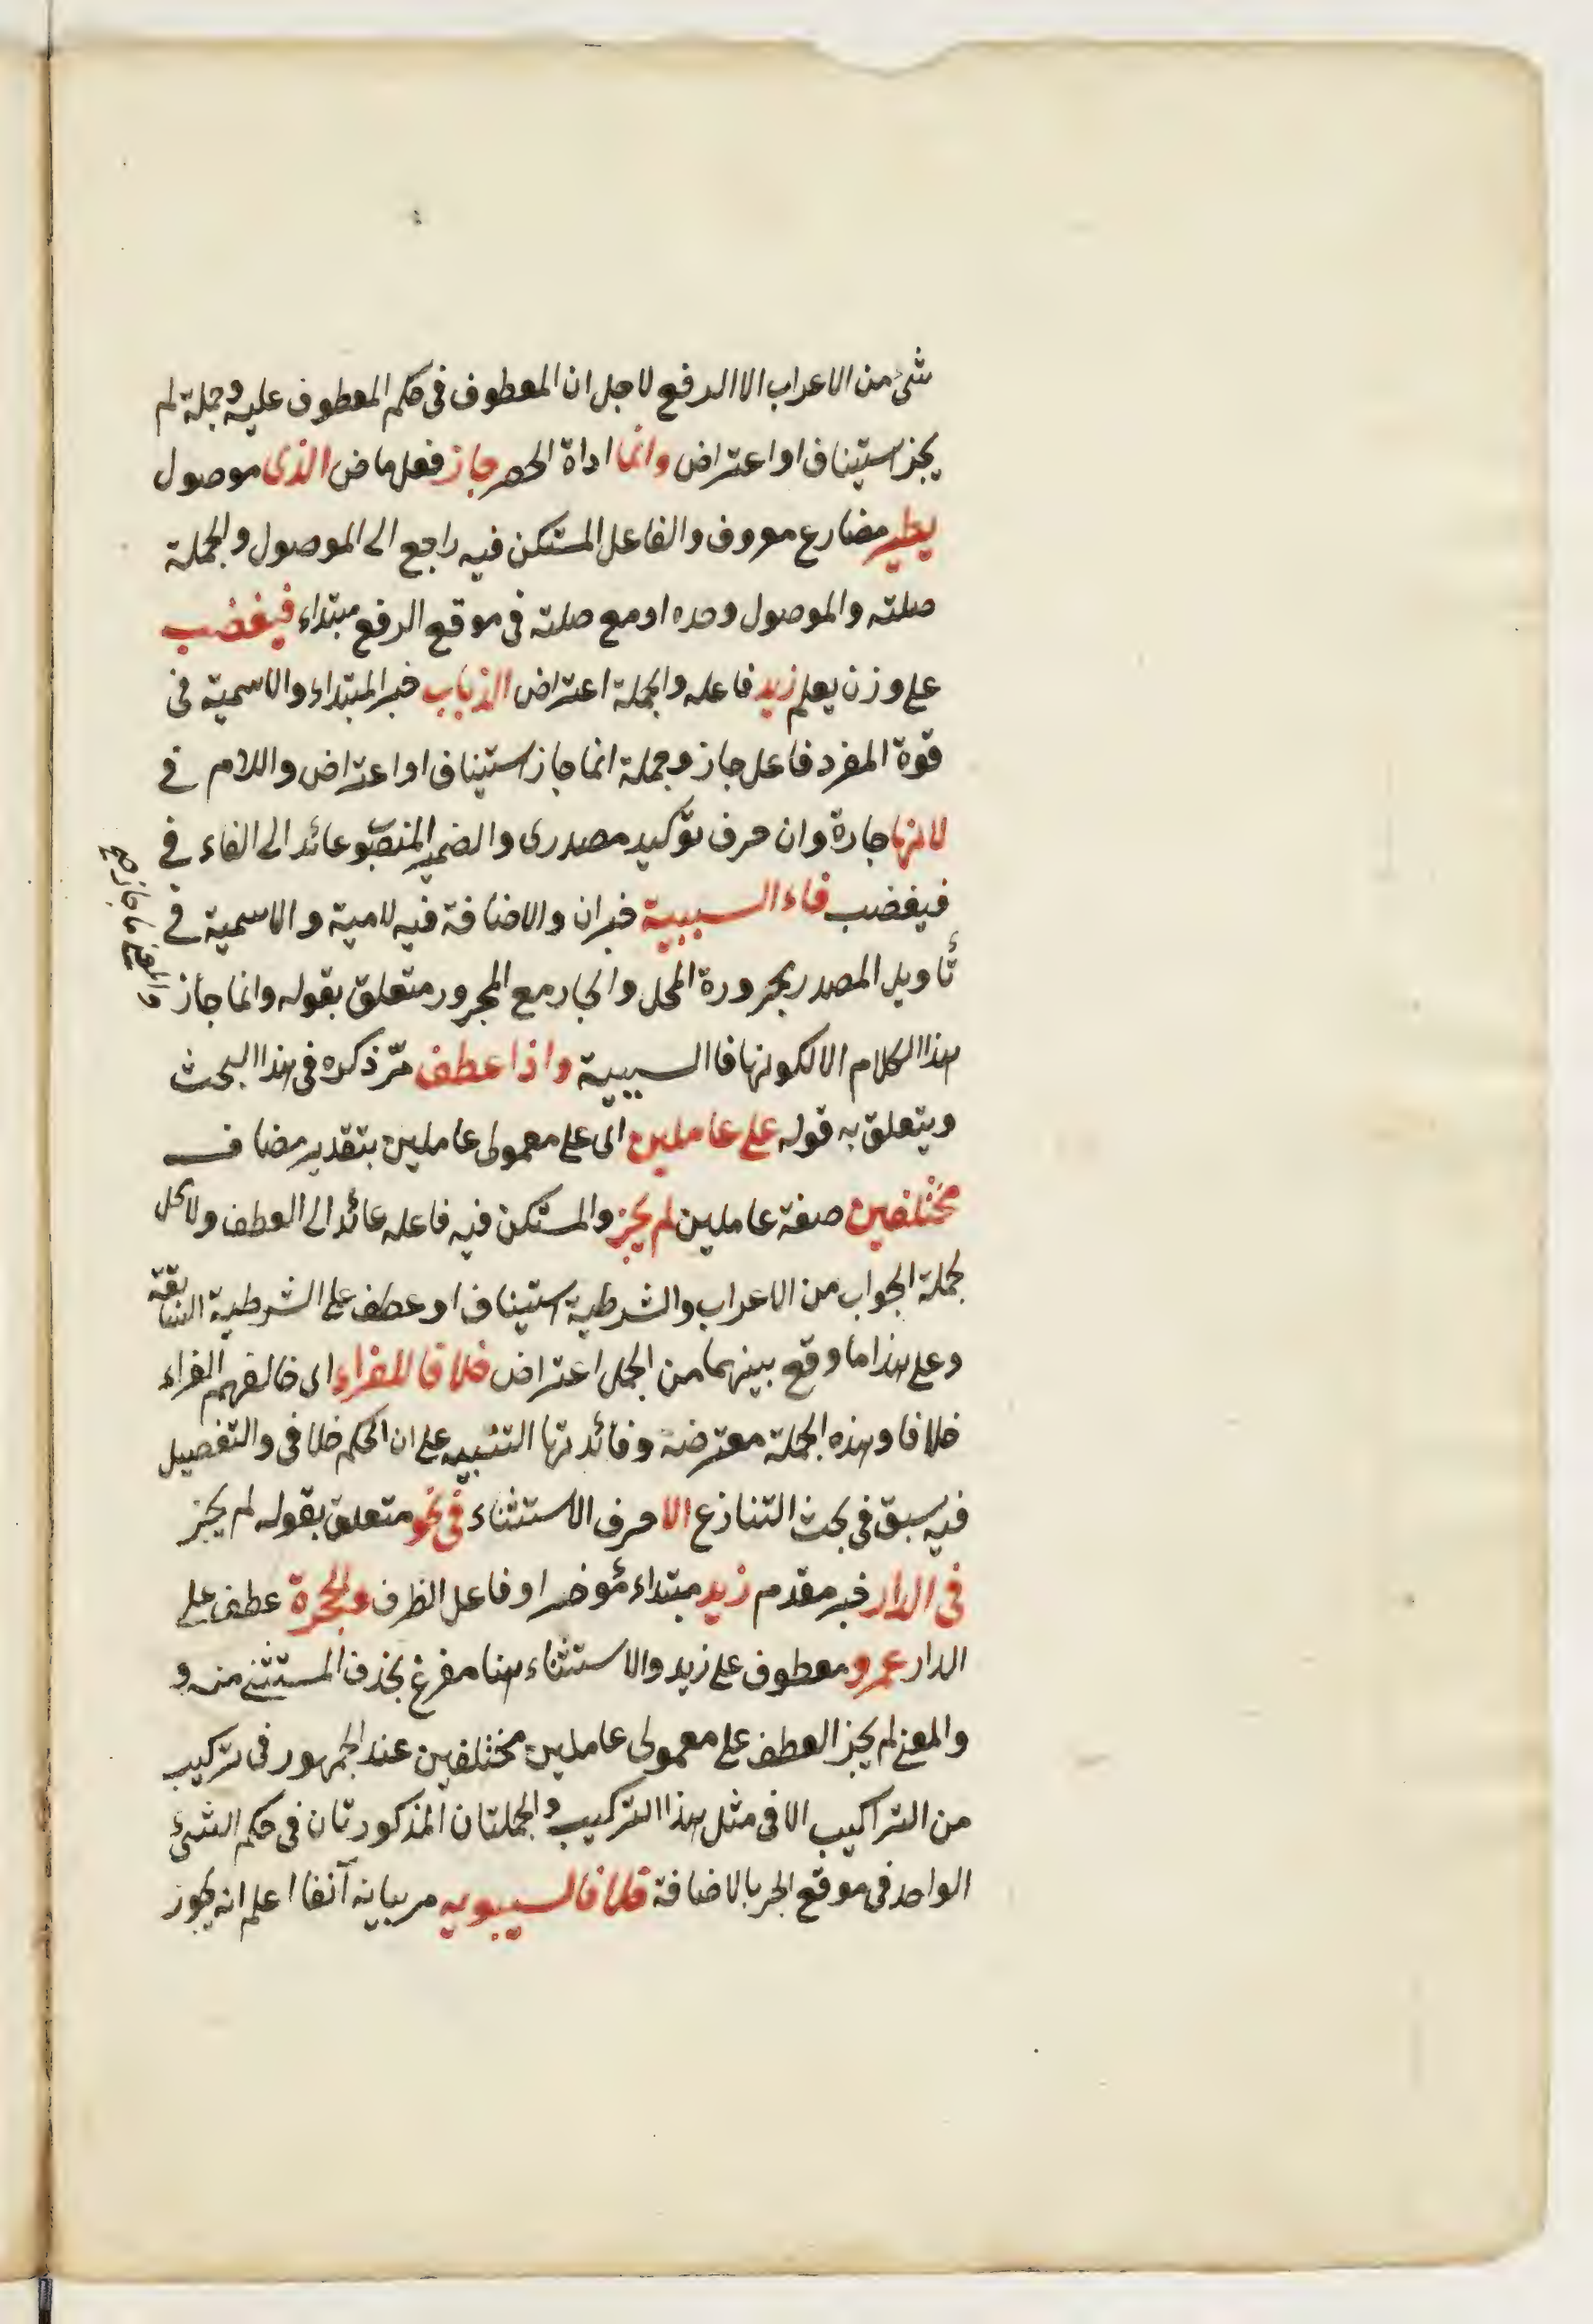 شئ من الاعراب الا الرفع لاجل ان المعطوف فى حكم المعطوف عليه وجملة لم
يجز استيناف او اعتراض وانما اداة الحصر جاز فعل ماض الذى موصول
يطير مضارع معروف والفاعل المستكن فيه راجع الى الموصول والجملة
صلته والموصول وحده او مع صلته فى موقع الرفع مبتداء فيغضب
على وزن يعلم زيد فاعله والجملة اعتراض الذباب خبر المبتداء والاسمية فى
قوة المفرد فاعل جاز وجملة انما جاز استيناف او اعتراض واللام فى
لانها جارة وان حرف توكيد مصدرى والضمير المنصوب عائد الى الفاء فى
فيغضب فاء السببية خبر ان والاضافة فيه لامية والاسمية فى
تأويل المصدر مجرورة المحل والجار مع المجرور متعلق بقوله وانما جاز
والمعنى ما جاز صح
هذا الكلام الا لكونها فا السببية واذا عطف مرّ ذكره فى هذا البحث
ويتعلق به قوله على عاملين اى على معمولى عاملين بتقدير مضاف
مختلفين صفة عاملين لم يجز والمستكن فيه فاعله عائد الى العطف ولا محل
لجملة الجواب من الاعراب والشرطية استيناف او عطف على الشرطية السابقة
وعلى هذا ما وقع بينهما من الجمل اعتراض خلافا للفراء اى خالفهم الفراء
خلافا وهذه الجملة معترضة وفائدتها التنبيه على ان الحكم خلافى والتفصيل
فيه سبق فى بحث التنازع الا حرف الاستثناء فى نحو متعلق بقوله لم يجز
فى الدار خبر مقدم زيد مبتداء مؤخر او فاعل الظرف والحجرة عطف على
الدار عمرو معطوف على زيد والاستثناء هنا مفرغ بحذف المستثنى منه و
والمعنى لم يجز العطف على معمولى عاملين مختلفين عند الجمهور فى تركيب
من التراكيب الا فى مثل هذا التركيب والجملتان المذكورتان فى حكم الشئ
الواحد فى موقع الجر بالاضافة خلافا لسيبويه مر بيانه آنفا اعلم انه يجوز